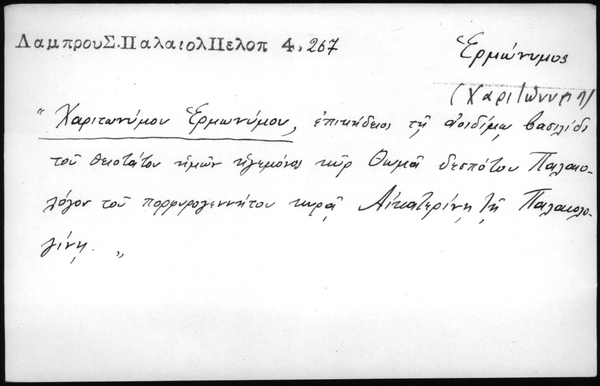 ΛαμπρουΣ.ΠαλαιολΠελοπ 4, 267
Ἑρμώνυμος
(Χαριτώνυμος)
"Χαριτωνύμου Ἑρμωνύμου, ἐπικήδειος τῇ ἀοιδίμῳ βασιλίδι
τοῦ θειοτάτου ἡμῶν ἡγεμόνος κῦρ Θωμᾶ δεσπότου Παλαιο-
λόγου τοῦ πορφυρογεννήτου κυρᾷ Αἰκατερίνῃ τῇ Παλαιολο-
γίνῃ. "